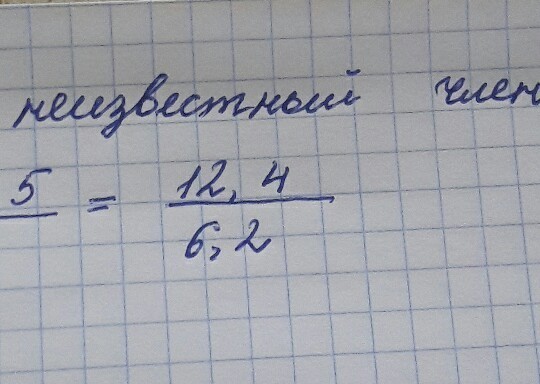 неизвестный член
5 = 12,4
6,2